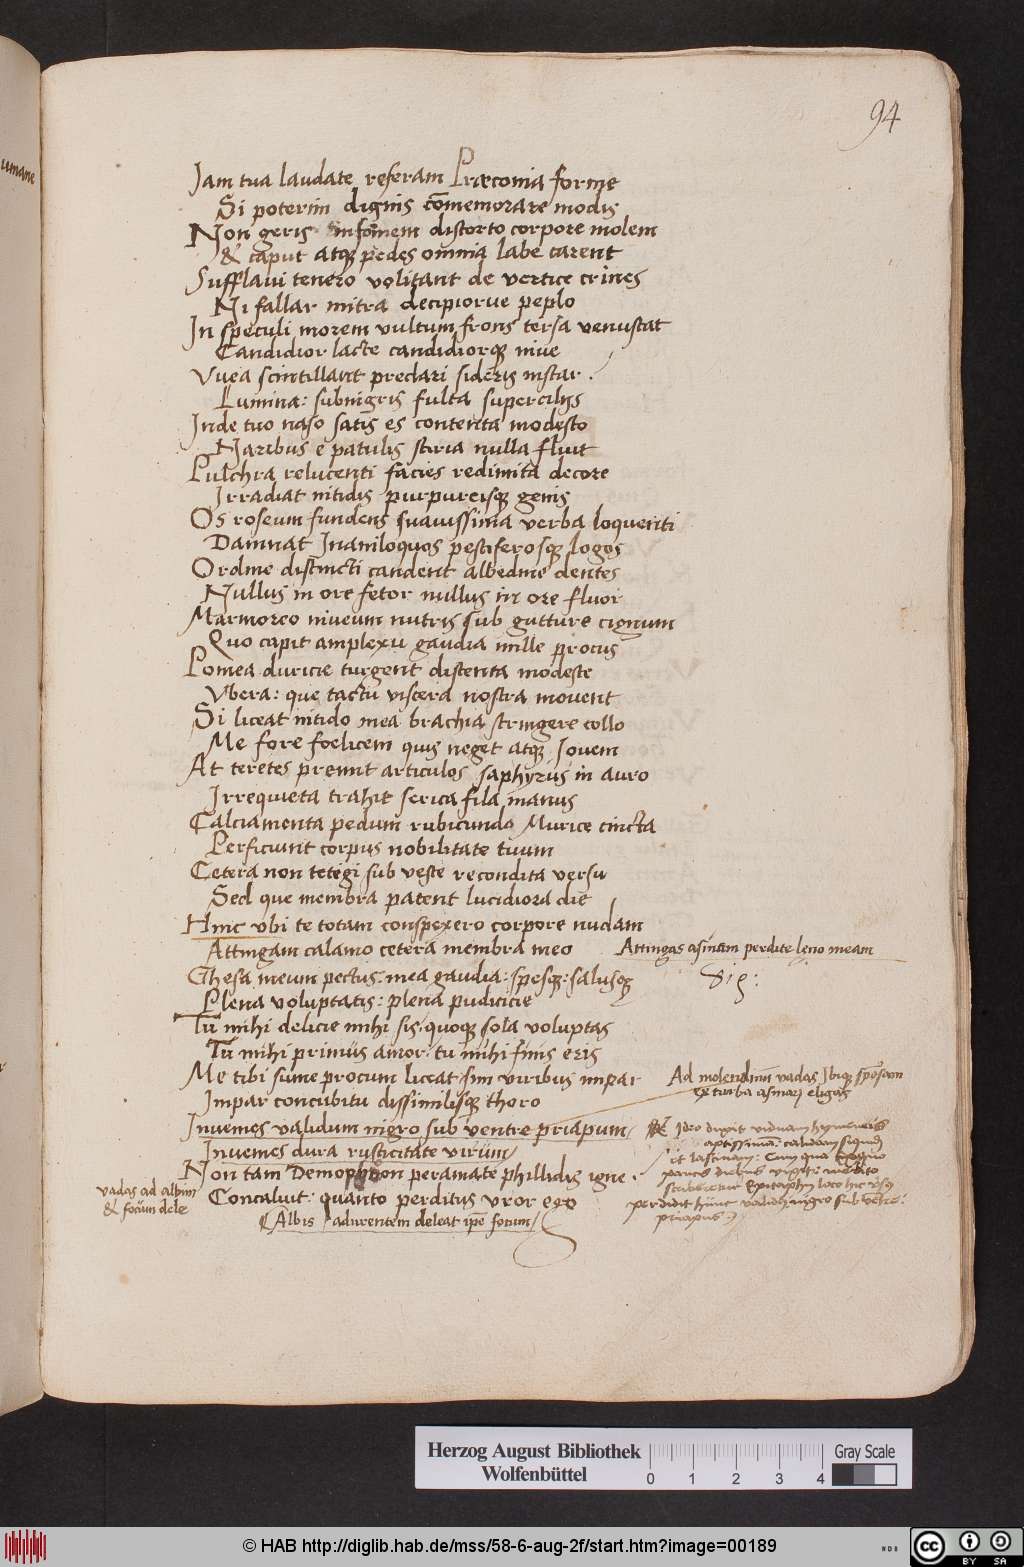 94
umane
Jam tua laudate referam Præconia forme
Si poterim dignis com̄emorare modis
Non geris informem distorto corpore molem
& caput atq; pedes omnia labe carent
Sufflaui tenero volitant de vertice crines
Ni fallar mitra decipiorue peplo
In speculi morem vultum frons tersa venustat
Candidior lacte candidiorq; niue
Vuea scintillant preclari sideris instar.
Lumina: subnigris fulta supercilijs
Inde tuo naso satis es contenta modesto
Naribus e patulis stiria nulla fluit
Pulchra relucenti facies redimita decore
Irradiat nitidis purpureisq; genis
Os roseum fundens suauissima verba loquenti
Damnat Inaniloquos pestiferosq; logos
Ordine distincti candent albedine dentes
Nullus in ore fetor nullus in ore fluor
Marmoreo niueum nutris sub gutture cignum
Quo capit amplexu gaudia mille procus
Pomea duricie turgent distenta modeste
Vbera: que tactu viscera nostra mouent
Si liceat nitido mea brachia stringere collo
Me fore foelicem quis neget atq; Jouem
At teretes premit articulos saphyrus in auro
Irrequieta trahit serica fila manus
Calciamenta pedum rubicundo Murice tincta
Perficiunt corpus nobilitate tuum
Cetera non tetigi sub veste recondita versu
Sed que membra patent lucidiora die
Hinc vbi te totam conspexero corpore nudam
Attingam calamo cetera membra meo
Attingas asinam perdite leno meam
Ghesa meum pectus: mea gaudia: spesq;: salusq;
Plena voluptatis: plena pudicicie
Tu mihi delicie mihi sis quoq; sola voluptas
Tu mihi primus amor: tu mihi finis eris
Me tibi sume procum liceat sim viribus impar
Ad molendinum vadas Ibiq; sponsam
ex turba asinarum eligas
Impar concubitu dissimilisq; thoro
Inuenies validum nigro sub ventre priapum
Inuenies dura rusticitate virum
Ideo duxit viduam
Non tam Demophoon peramate phillidis igne.
Concaluit: quanto perditus vror ego
vadas ad albim
& focum dele
Albis adurentem deleat ipse focum
Herzog August Bibliothek
Wolfenbüttel
0 1 2 3 4
Gray Scale
© HAB http://diglib.hab.de/mss/58-6-aug-2f/start.htm?image=00189
cc BY SA